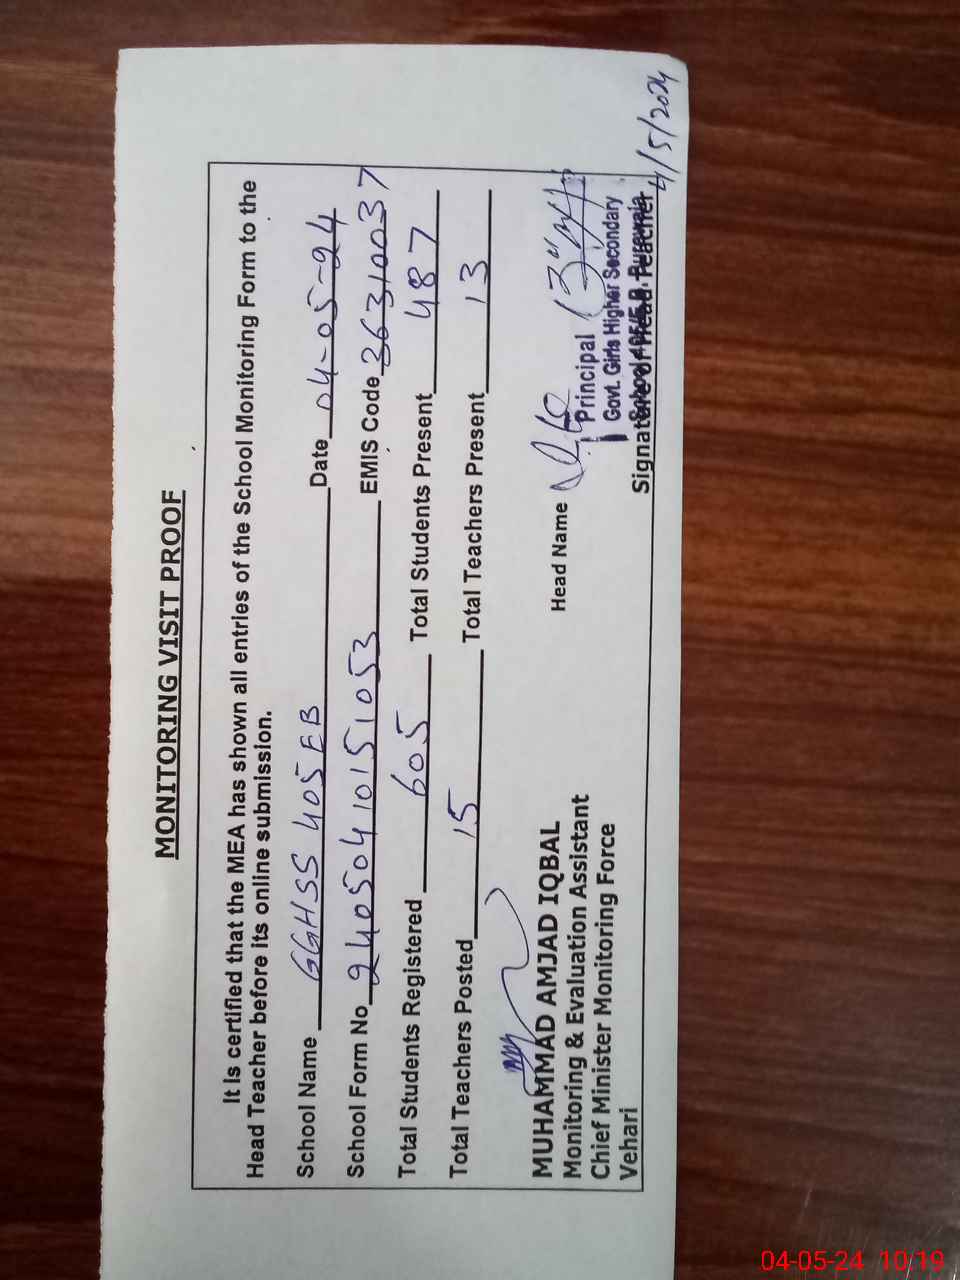 MONITORING VISIT PROOF
It is certified that the MEA has shown all entries of the School Monitoring Form to the
Head Teacher before its online submission.
School Name GGHSS 405 EB Date 04-05-24
School Form No 2405041015 1053 EMIS Code 36310037
Total Students Registered 605 Total Students Present 487
Total Teachers Posted 15 Total Teachers Present 13
MUHAMMAD AMJAD IQBAL
Monitoring & Evaluation Assistant
Chief Minister Monitoring Force
Vehari
Head Name
Principal
Govt. Girls Higher Secondary
School 405/E.B. Burewala
Signature of Head Teacher
4/5/2024
04-05-24 10:19